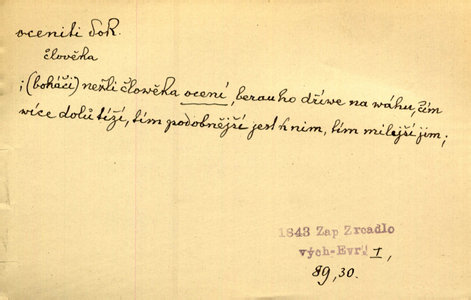 oceniti dok.
člověka
; (boháči) nežli člověka ocení, berau ho dříwe na wáhu, čím
více dolů tíží, tím podobnější jest k nim, tím milejší jim;
1843 Zap Zrcadlo
vých-Evr. I,
89,30.